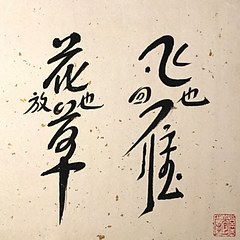 飞回也雁
花放也草